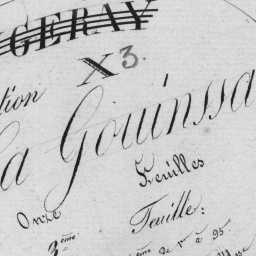 GERAY
X 3.
tion
La Gouinssa
Feuilles
Onze
Feuille:
3ème
de r à 95.